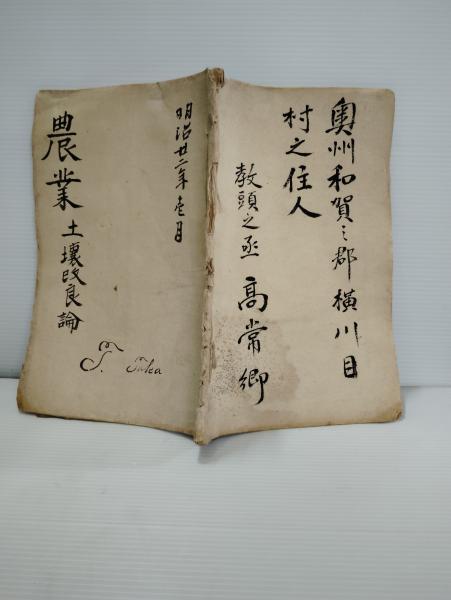 奥州和賀之郡横川目
村之住人
教頭之丞 高常郷
明治廿二年壱月
農業土壌改良論
T. Taka